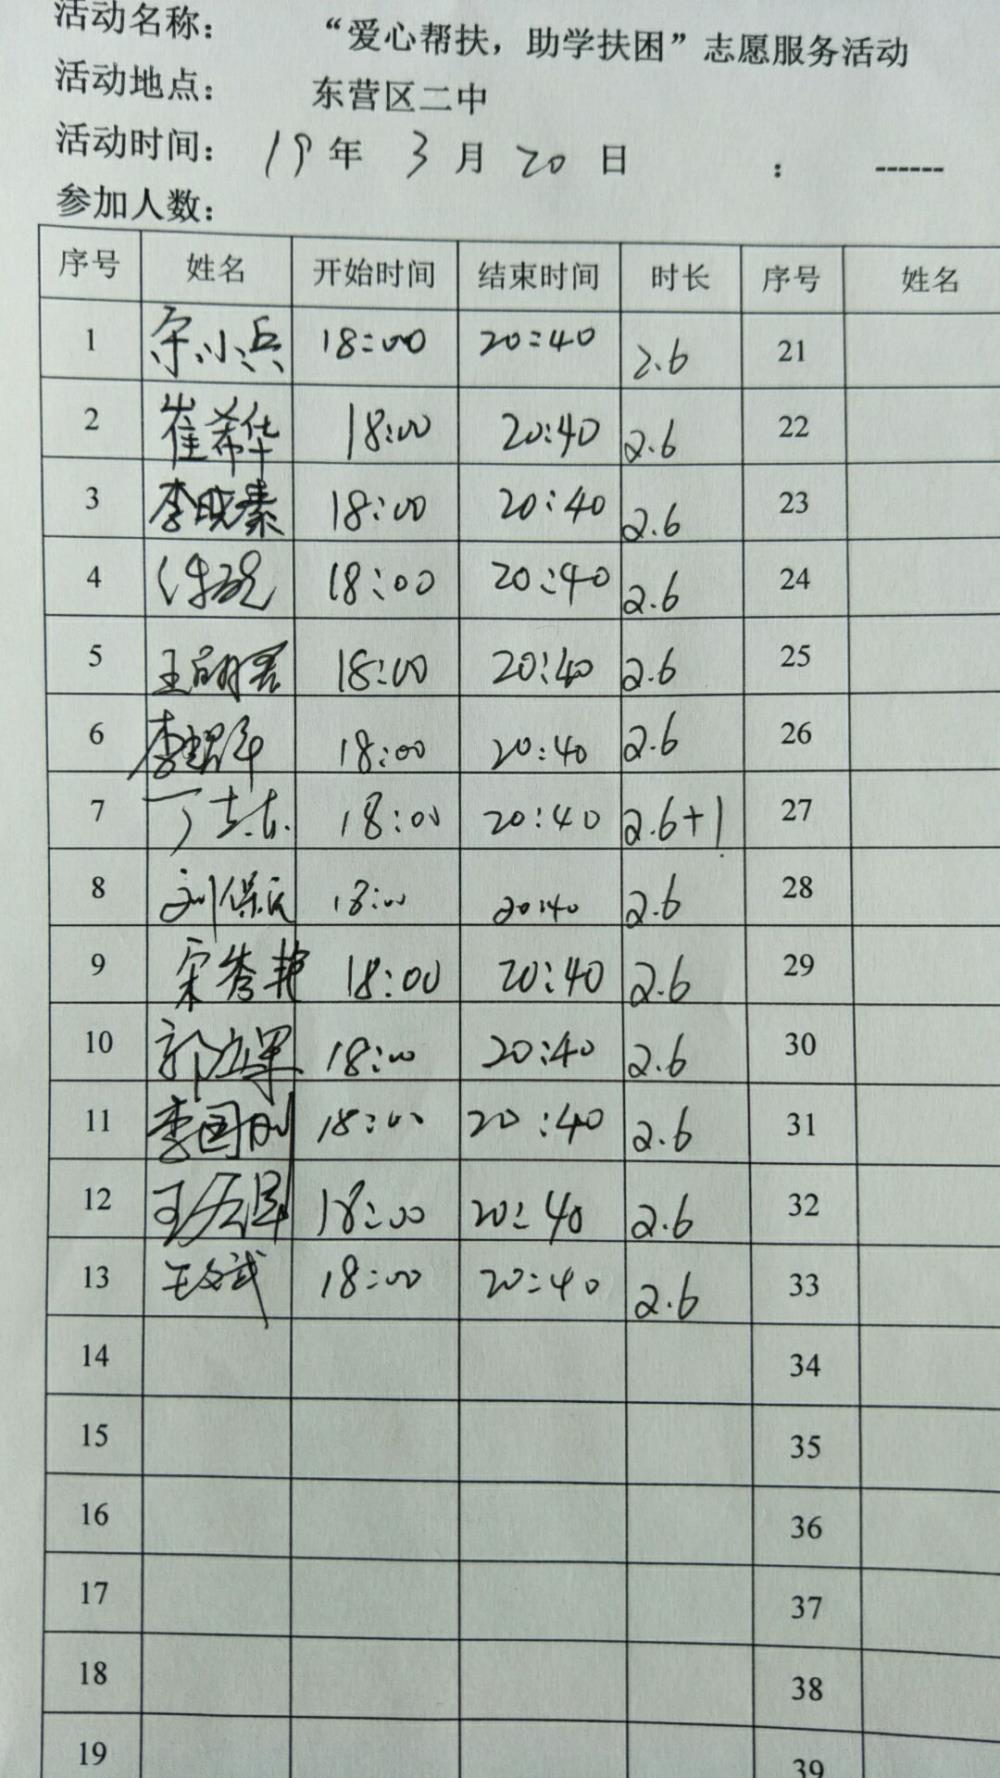 活动名称： “爱心帮扶，助学扶困”志愿服务活动
活动地点： 东营区二中
活动时间： 19年 3月 20日 ： ------
参加人数：
序号 姓名 开始时间 结束时间 时长 序号 姓名
1 宋小兵 18:00 20:40 2.6 21
2 崔希华 18:00 20:40 2.6 22
3 李晓素 18:00 20:40 2.6 23
4 18:00 20:40 2.6 24
5 王 18:00 20:40 2.6 25
6 李 18:00 20:40 2.6 26
7 丁 18:00 20:40 2.6+1 27
8 刘保 18:00 20:40 2.6 28
9 宋秀艳 18:00 20:40 2.6 29
10 郭 18:00 20:40 2.6 30
11 李国刚 18:00 20:40 2.6 31
12 王 18:00 20:40 2.6 32
13 王文斌 18:00 20:40 2.6 33
14 34
15 35
16 36
17 37
18 38
19 39